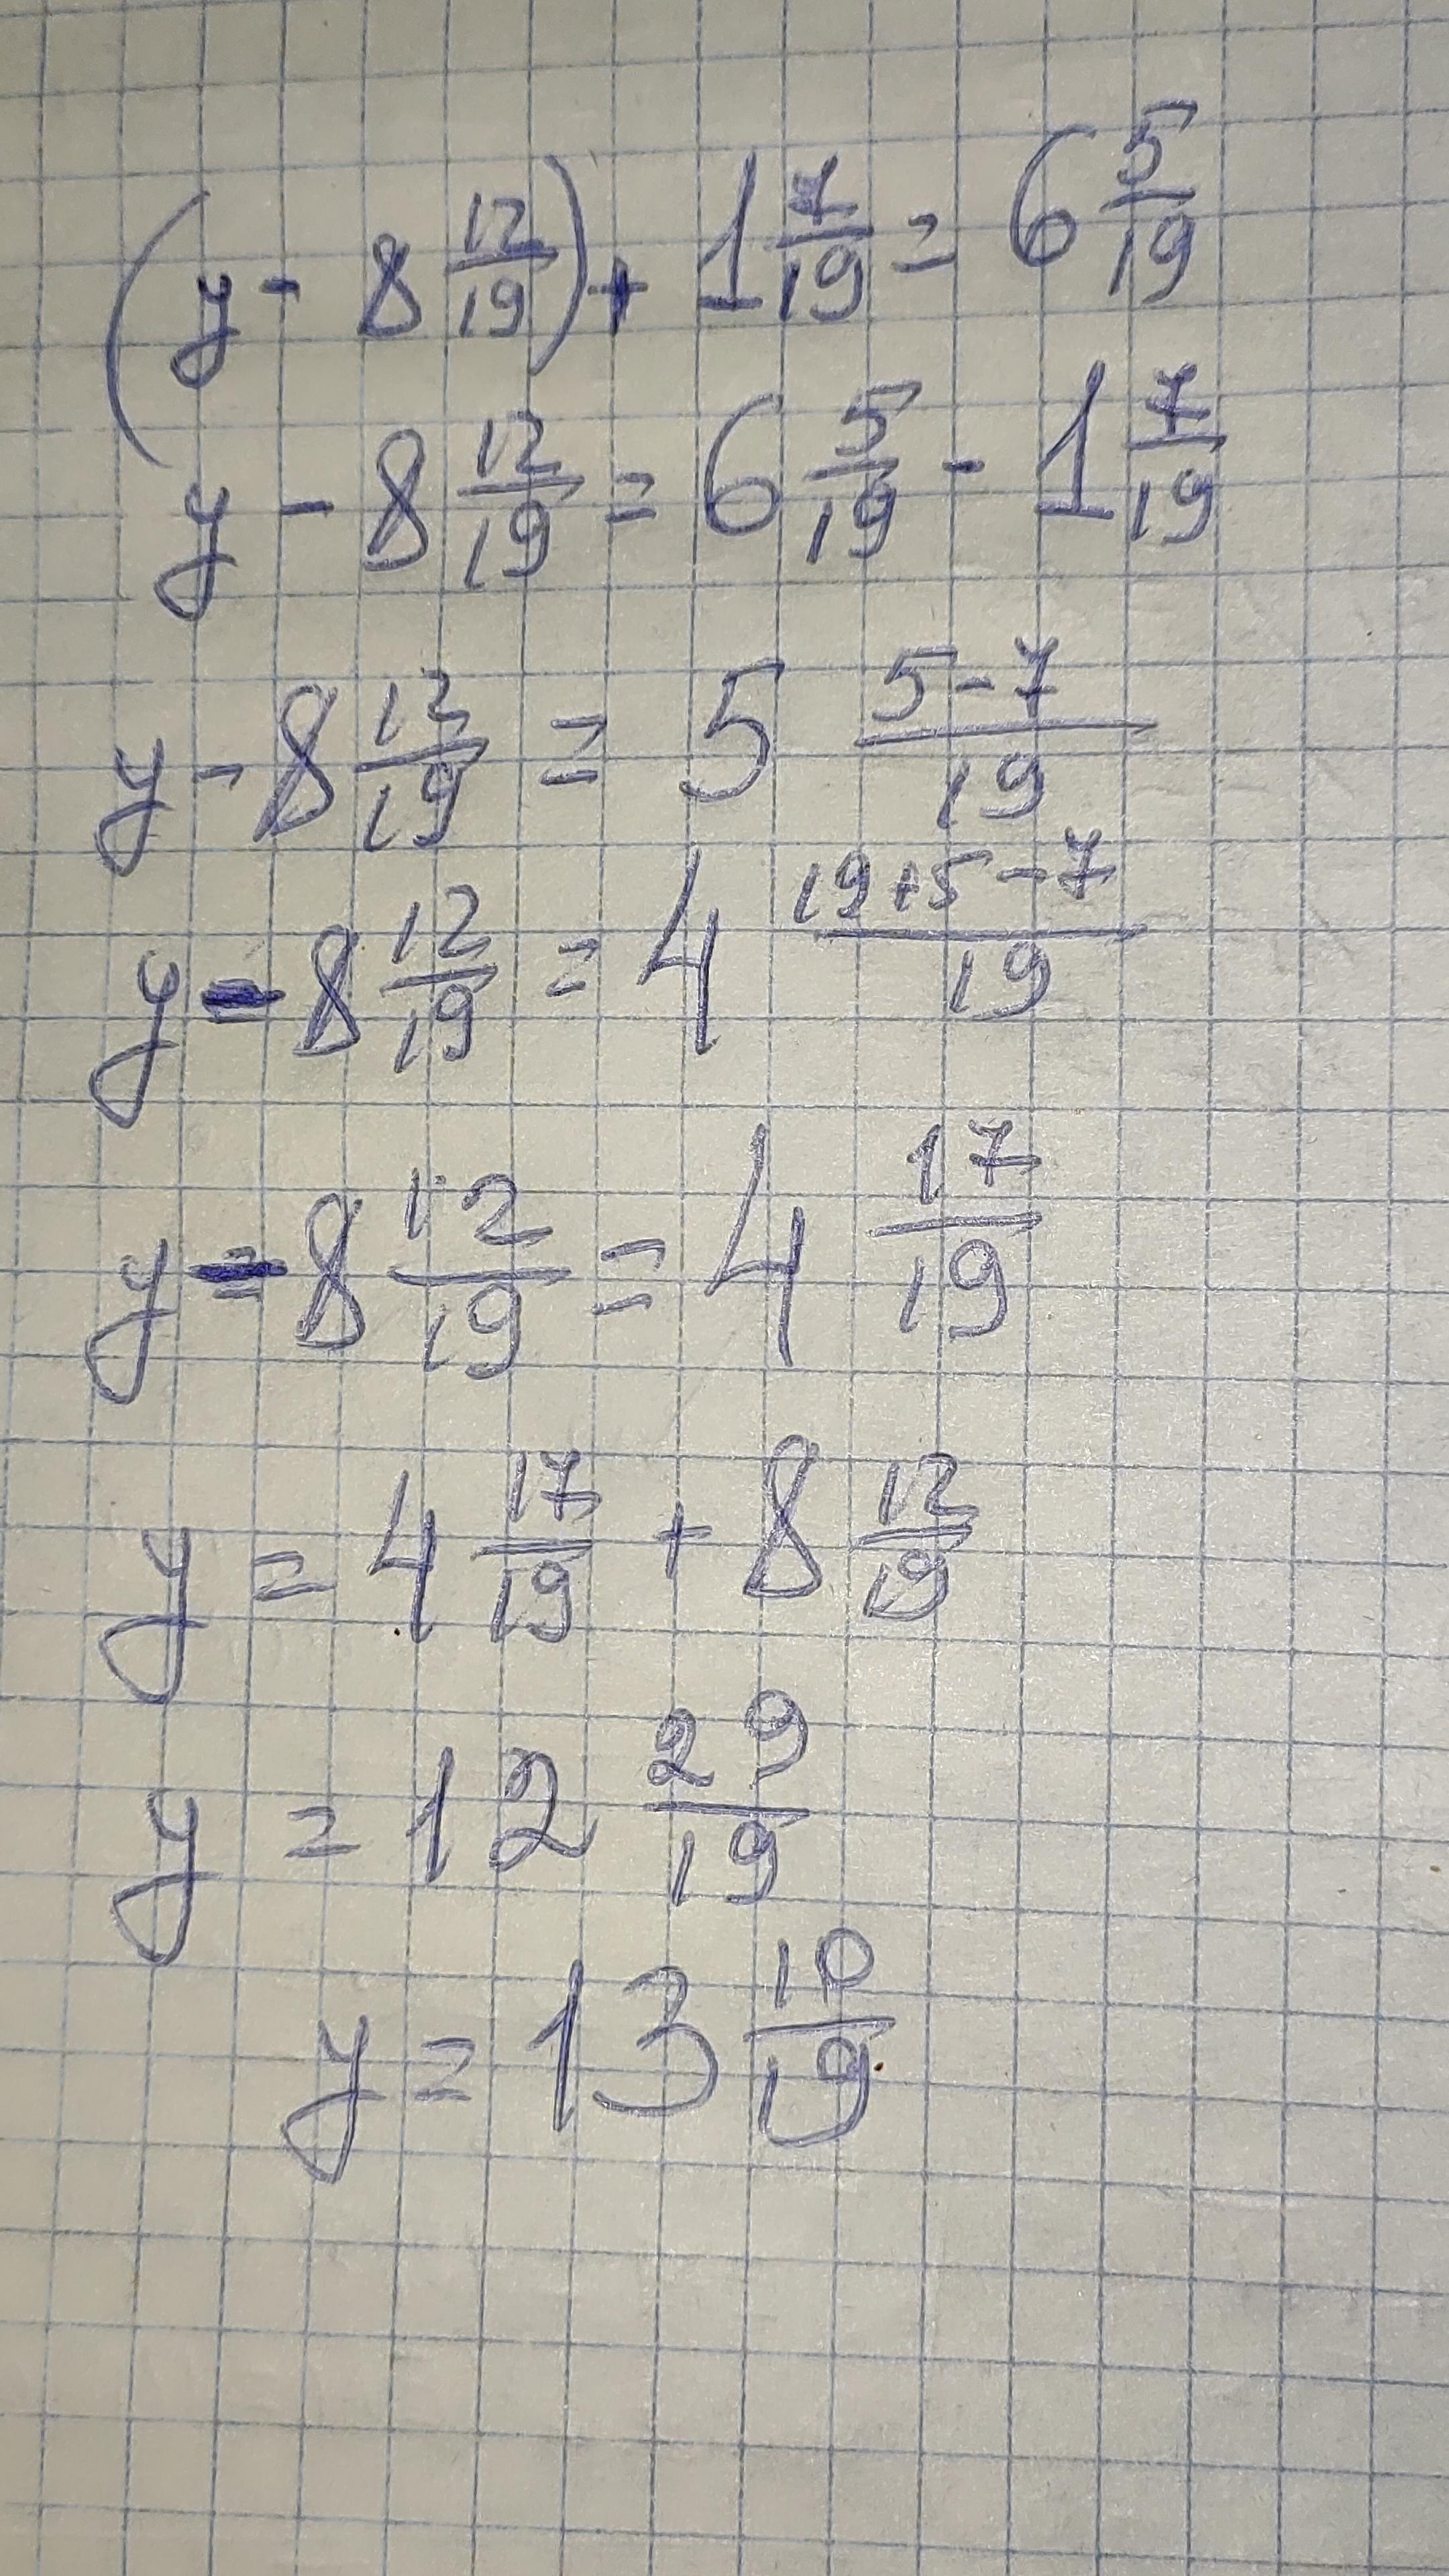 (y - 8 12/19) + 1 7/19 = 6 5/19
y - 8 12/19 = 6 5/19 - 1 7/19
y - 8 12/19 = 5 (5-7)/19
y - 8 12/19 = 4 (19+5-7)/19
y - 8 12/19 = 4 17/19
y = 4 17/19 + 8 12/19
y = 12 29/19
y = 13 10/19